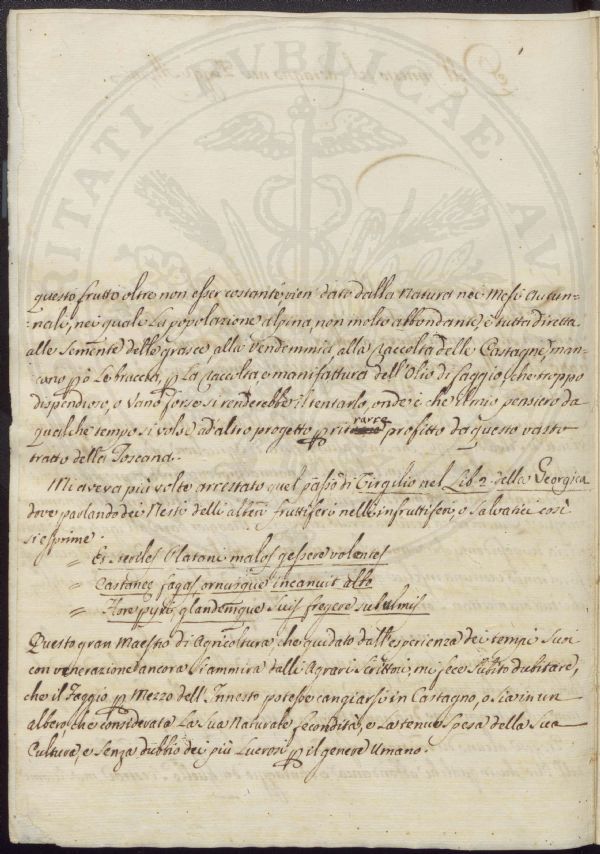 PROSPERITATI PUBLICAE AU
questo frutto oltre non esser costante, vien dato dalla Natura nei Mesi Autun=
=nali, nei quale La popolazione alpina, non molto abbondante, è tutta diretta
alle Semente delle grasce alla Vendemmia, alla raccolta delle Castagne, man=
cano p ciò Le braccia, p La raccolta, e manifattura dell'Olio di faggio, che troppo
dispendioso, o Vano forse si renderebbe il tentarlo, onde è che il mio pensiero da
qualche tempo si volse ad altro progetto p ritrarre profitto da questo vasto
tratto della Toscana.
Mi aveva più volte arrestato quel passo di Virgilio nel Lib. 2. della Georgica
dove parlando dei Nesti delli alberi fruttiferi nelli infruttiferi, o Salvatici così
si esprime.
= Et steriles Platani malos gessere volentes
= Castaneę fagos ornusque incanuit albo
= Flore pyri, glandemque Suis fregere sub ulmis
Questo gran Maestro di Agricoltura che guidato dall'esperienza dei tempi Suoi
con venerazione ancora Si ammira dalli Agrari Scrittori, mi fece Subito dubitare,
che il Faggio p Mezzo dell'Innesto potesse cangiarsi in Castagno, o sia in un
albero, che considerata La sua Naturale fecondità, e La tenue Spesa della Sua
Cultura, e Senza dubbio dei più Lucrosi p il genere Umano.